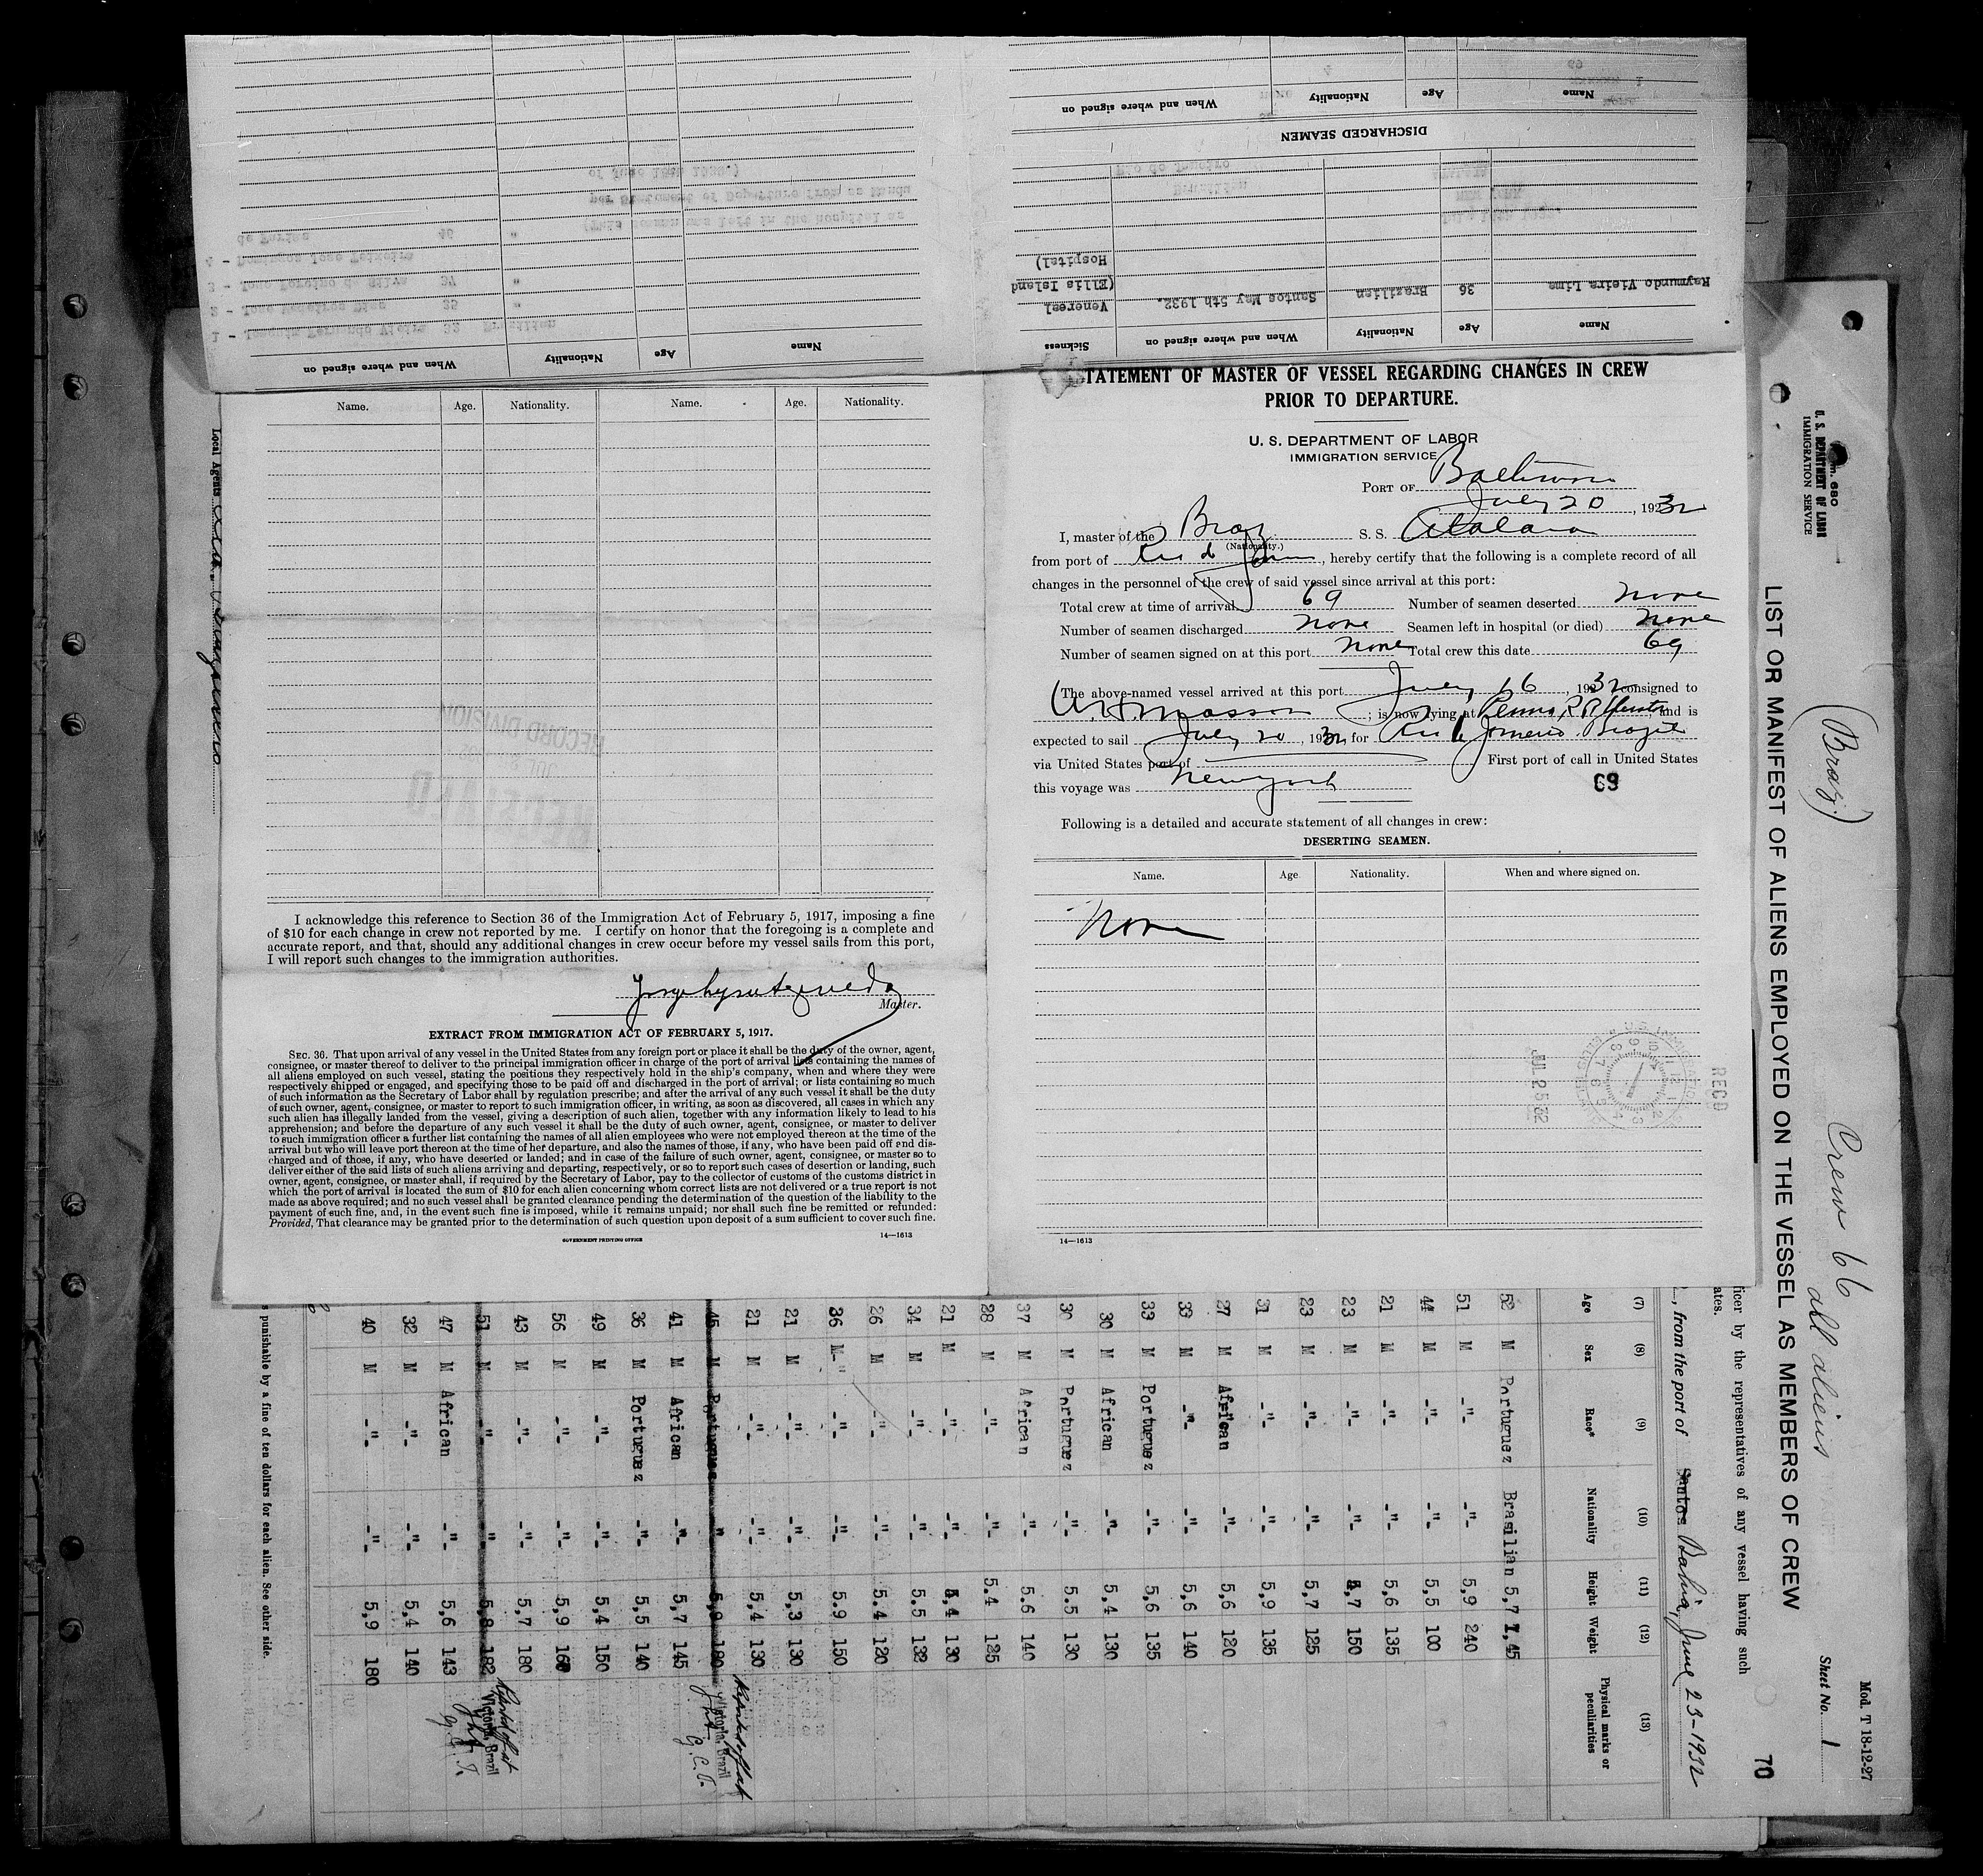 Name
Age
Nationality
When and where signed on
DISCHARGED SEAMEN
Name
Age
Nationality
When and where signed on
Sickness
Raymundo Vieira Lima
36
Brazilian
Santos May 5th 1932.
Venereal
(Ellis Island
Hospital)
Name
Age
Nationality
When and where signed on
1 - Joaquim Fernando Vieira 32 Brazilian
3 - Jose 37 "
4 - Domingos Jose Teixeira
(This seaman was left in the hospital as
per Statement of Departure from ss Mandu
Name. Age. Nationality. Name. Age. Nationality.
Local Agents
RECORD DIVISION
I acknowledge this reference to Section 36 of the Immigration Act of February 5, 1917, imposing a fine
of $10 for each change in crew not reported by me. I certify on honor that the foregoing is a complete and
accurate report, and that, should any additional changes in crew occur before my vessel sails from this port,
I will report such changes to the immigration authorities.
Master.
EXTRACT FROM IMMIGRATION ACT OF FEBRUARY 5, 1917.
SEC. 36. That upon arrival of any vessel in the United States from any foreign port or place it shall be the duty of the owner, agent,
consignee, or master thereof to deliver to the principal immigration officer in charge of the port of arrival lists containing the names of
all aliens employed on such vessel, stating the positions they respectively hold in the ship's company, when and where they were
respectively shipped or engaged, and specifying those to be paid off and discharged in the port of arrival; or lists containing so much
of such information as the Secretary of Labor shall by regulation prescribe; and after the arrival of any such vessel it shall be the duty
of such owner, agent, consignee, or master to report to such immigration officer, in writing, as soon as discovered, all cases in which any
such alien has illegally landed from the vessel, giving a description of such alien, together with any information likely to lead to his
apprehension; and before the departure of any such vessel it shall be the duty of such owner, agent, consignee, or master to deliver
to such immigration officer a further list containing the names of all alien employees who were not employed thereon at the time of the
arrival but who will leave port thereon at the time of her departure, and also the names of those, if any, who have been paid off and dis-
charged and of those, if any, who have deserted or landed; and in case of the failure of such owner, agent, consignee, or master so to
deliver either of the said lists of such aliens arriving and departing, respectively, or so to report such cases of desertion or landing, such
owner, agent, consignee, or master shall, if required by the Secretary of Labor, pay to the collector of customs of the customs district in
which the port of arrival is located the sum of $10 for each alien concerning whom correct lists are not delivered or a true report is not
made as above required; and no such vessel shall be granted clearance pending the determination of the question of the liability to the
payment of such fine, and, in the event such fine is imposed, while it remains unpaid; nor shall such fine be remitted or refunded:
Provided, That clearance may be granted prior to the determination of such question upon deposit of a sum sufficient to cover such fine.
GOVERNMENT PRINTING OFFICE
14—1613
STATEMENT OF MASTER OF VESSEL REGARDING CHANGES IN CREW
PRIOR TO DEPARTURE.
U. S. DEPARTMENT OF LABOR
IMMIGRATION SERVICE
PORT OF Baltimore
July 20, 1932
I, master of the Braz S. S. Atalaia
(Nationality.)
from port of Rio de Jan, hereby certify that the following is a complete record of all
changes in the personnel of the crew of said vessel since arrival at this port:
Total crew at time of arrival 69 Number of seamen deserted none
Number of seamen discharged none Seamen left in hospital (or died) none
Number of seamen signed on at this port none Total crew this date 69
The above-named vessel arrived at this port July 16, 1932 consigned to
; is now lying at Penna R R, and is
expected to sail July 20, 1932, for Rio de Janeiro Brazil
via United States port of First port of call in United States
this voyage was New York
69
Following is a detailed and accurate statement of all changes in crew:
DESERTING SEAMEN.
Name. Age. Nationality. When and where signed on.
None
REC'D
JUL 25 32
14—1613
Form 680
U. S. DEPARTMENT OF LABOR
IMMIGRATION SERVICE
LIST OR MANIFEST OF ALIENS EMPLOYED ON THE VESSEL AS MEMBERS OF CREW
(Braz.)
Crew 66
all aliens
Sheet No. 1
Mod. T 18-12-27
70
ficer by the representatives of any vessel having such
ates.
, from the port of Santos Bahia, June 23-1932
(7) (8) (9) (10) (11) (12) (13)
Age Sex Race* Nationality Height Weight Physical marks or peculiarities
52 M Portuguez Brasilian 5,7 1,45
51 M -"- -"- 5,9 240
44 M -"- -"- 5,5 100
21 M -"- -"- 5,6 135
23 M -"- -"- 5,7 150
23 M -"- -"- 5,7 125
31 M -"- -"- 5,9 135
27 M African -"- 5,6 120
33 M -"- -"- 5,6 140
33 M Portuguez -"- 5,6 135
30 M African -"- 5,4 130
30 M Portuguez -"- 5.5 130
37 M African -"- 5.6 140
28 M -"- -"- 5.4 125
21 M -"- -"- 5,4 130
34 M -"- -"- 5.5 132
26 M -"- -"- 5.4 120
36 M -"- -"- 5.9 150
21 M -"- -"- 5,3 130
21 M -"- -"- 5,4 130
45 M Portuguez " 5,9 180 Victoria, Brazil G.C.T.
41 M African -"- 5,7 145
36 M Portuguez -"- 5,5 140
49 M -"- -"- 5,4 150
56 M -"- -"- 5,9 160
43 M -"- -"- 5,7 180
51 M -"- -"- 5,8 182 Victoria, Brazil G.C.T.
47 M African -"- 5,6 143
32 M -"- -"- 5,4 140
40 M -"- -"- 5,9 180
s punishable by a fine of ten dollars for each alien. See other side.